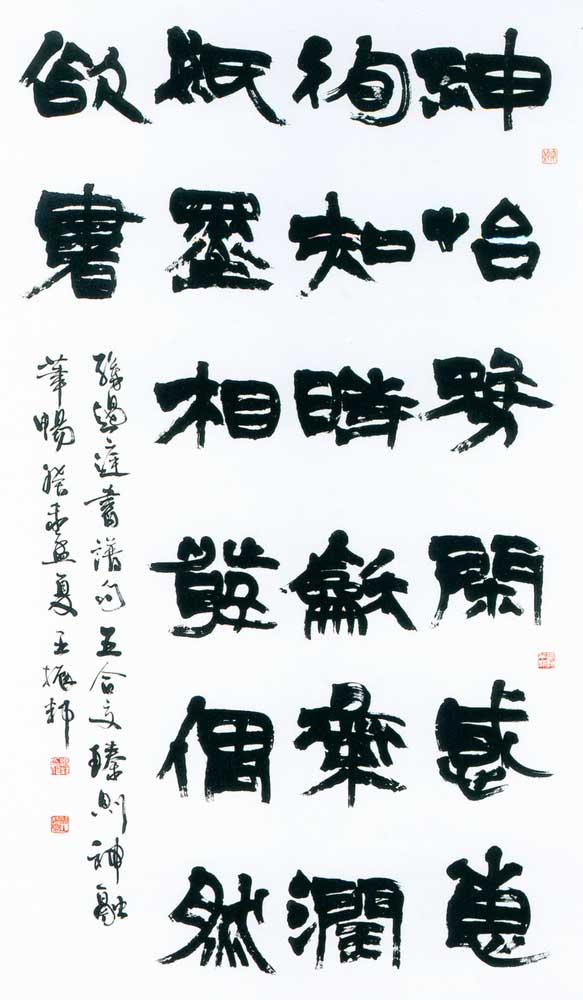 神怡務閑感惠
徇知時龢氣潤
紙墨相發偶然
欲書
孫過庭書譜句五合交臻則神融
筆暢癸未孟夏王振邦